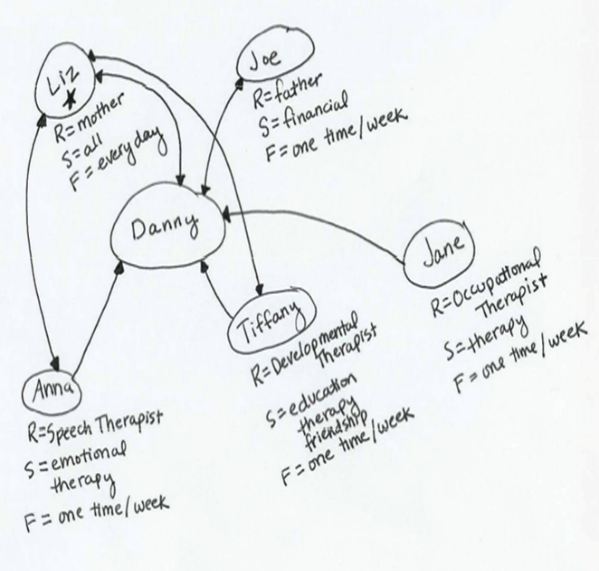 Liz
R=mother
S=all
F=everyday
Joe
R=father
S=financial
F=one time/week
Danny
Jane
R=Occupational
Therapist
S=therapy
F=one time/week
Tiffany
R=Developmental
Therapist
S=education
therapy
friendship
F=one time/week
Anna
R=Speech Therapist
S=emotional
therapy
F=one time/week